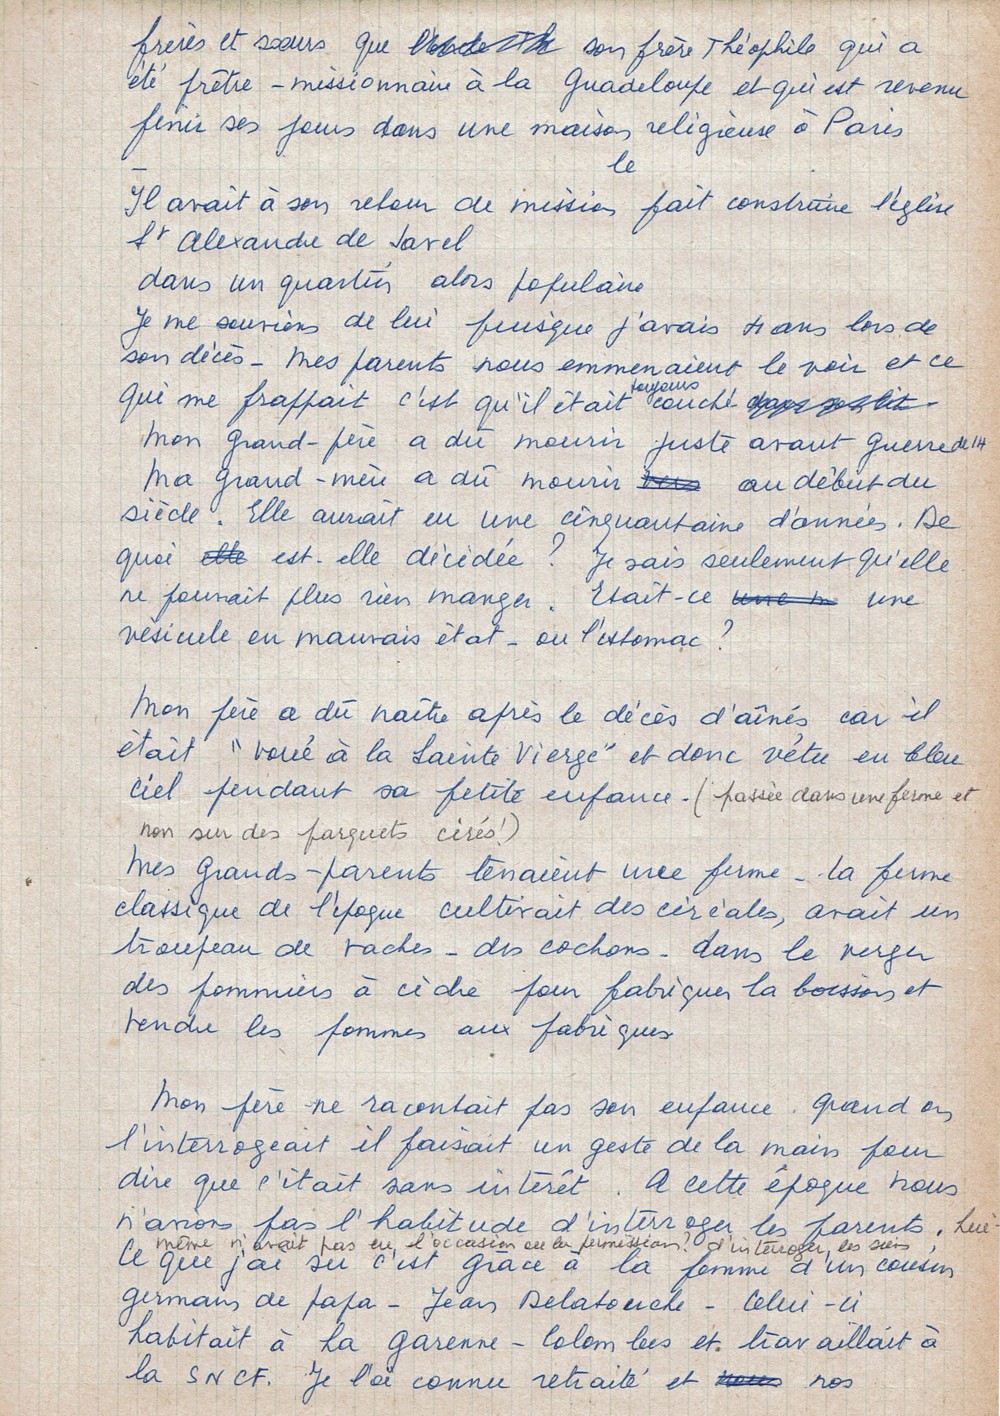 frères et sœurs que son frère Théophile qui a
été prêtre - missionnaire à la Guadeloupe et qui est revenu
finir ses jours dans une maison religieuse à Paris
le
Il avait à son retour de mission fait construire l'église
St Alexandre de Javel
dans un quartier alors populaire
Je me souviens de lui puisque j'avais ans lors de
son décès - Mes parents nous emmenaient le voir et ce
qui me frappait c'est qu'il était toujours couché dans son lit
Mon grand-père a dû mourir juste avant guerre de 14
Ma grand-mère a dû mourir vers au début du
siècle. Elle aurait eu une cinquantaine d'années. De
quoi elle est-elle décédée ? Je sais seulement qu'elle
ne pouvait plus rien manger. Etait-ce une m une
vésicule en mauvais état - ou l'estomac ?
Mon père a dû naître après le décès d'aînés car il
était "voué à la Sainte Vierge" et donc vêtu en bleu
ciel pendant sa petite enfance. (passée dans une ferme et
non sur des parquets cirés !)
Mes grands-parents tenaient une ferme - la ferme
classique de l'époque cultivait des céréales, avait un
troupeau de vaches - des cochons - dans le verger
des pommiers à cidre pour fabriquer la boisson et
vendre les pommes aux fabriques
Mon père ne racontait pas son enfance. Quand on
l'interrogeait il faisait un geste de la main pour
dire que c'était sans intérêt. A cette époque nous
n'avions pas l'habitude d'interroger les parents. Lui-
même n'avait pas eu l'occasion ou la permission ? d'interroger les siens
Ce que j'ai su c'est grâce à la femme d'un cousin
germain de papa - Jean Delatouche - Celui-ci
habitait à La Garenne-Colombes et travaillait à
la SNCF. Je l'ai connu retraité et nous nos